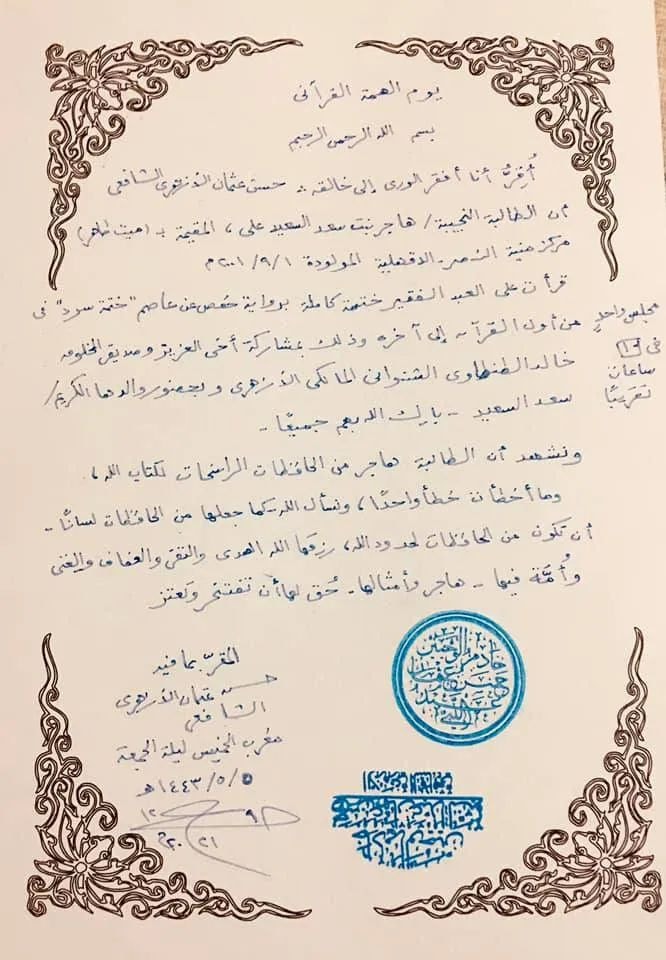 يوم الهمة القرآني
بسم الله الرحمن الرحيم
أُقِرُّ أنا أفقر الورى إلى خالقه :. حسن عثمان الأزهري الشافعي
أن الطالبة النجيبة / هاجر بنت سعد السعيد علي ، المقيمة بـ (ميت طاهر)
مركز منية النصر - الدقهلية المولودة ١ / ٩ / ٢٠٠١م
قرأت على العبد الفقير ختمة كاملة برواية حفص عن عاصم "ختمة سرد" في
مجلس واحدٍ
من أول القرآن إلى آخره وذلك بمشاركة أخي العزيز وصديقي الخلوق
في ١٠ ساعات تقريبًا
خالد الطنطاوي الشنواني المالكي الأزهري وبحضور والدها الكريم /
سعد السعيد - بارك الله بهم جميعًا -
ونشهد أن الطالبة هاجر من الحافظات الراسخات لكتاب الله ،
وما أخطأت خطأ واحدًا ، ونسأل الله - كما جعلها من الحافظات لسانًا -
أن تكون من الحافظات لحدود الله، رزقها الله الهدى والتقى والعفاف والغنى
وأُمَّة فيها - هاجر وأمثالها - حُق لها أن تفتخر وتعتز
المُقرّ بما فيه
حسن عثمان الأزهري
الشافعي
مغرب الخميس ليلة الجمعة
٥ / ٥ / ١٤٤٣هـ
٩
١٢
٢٠٢١م